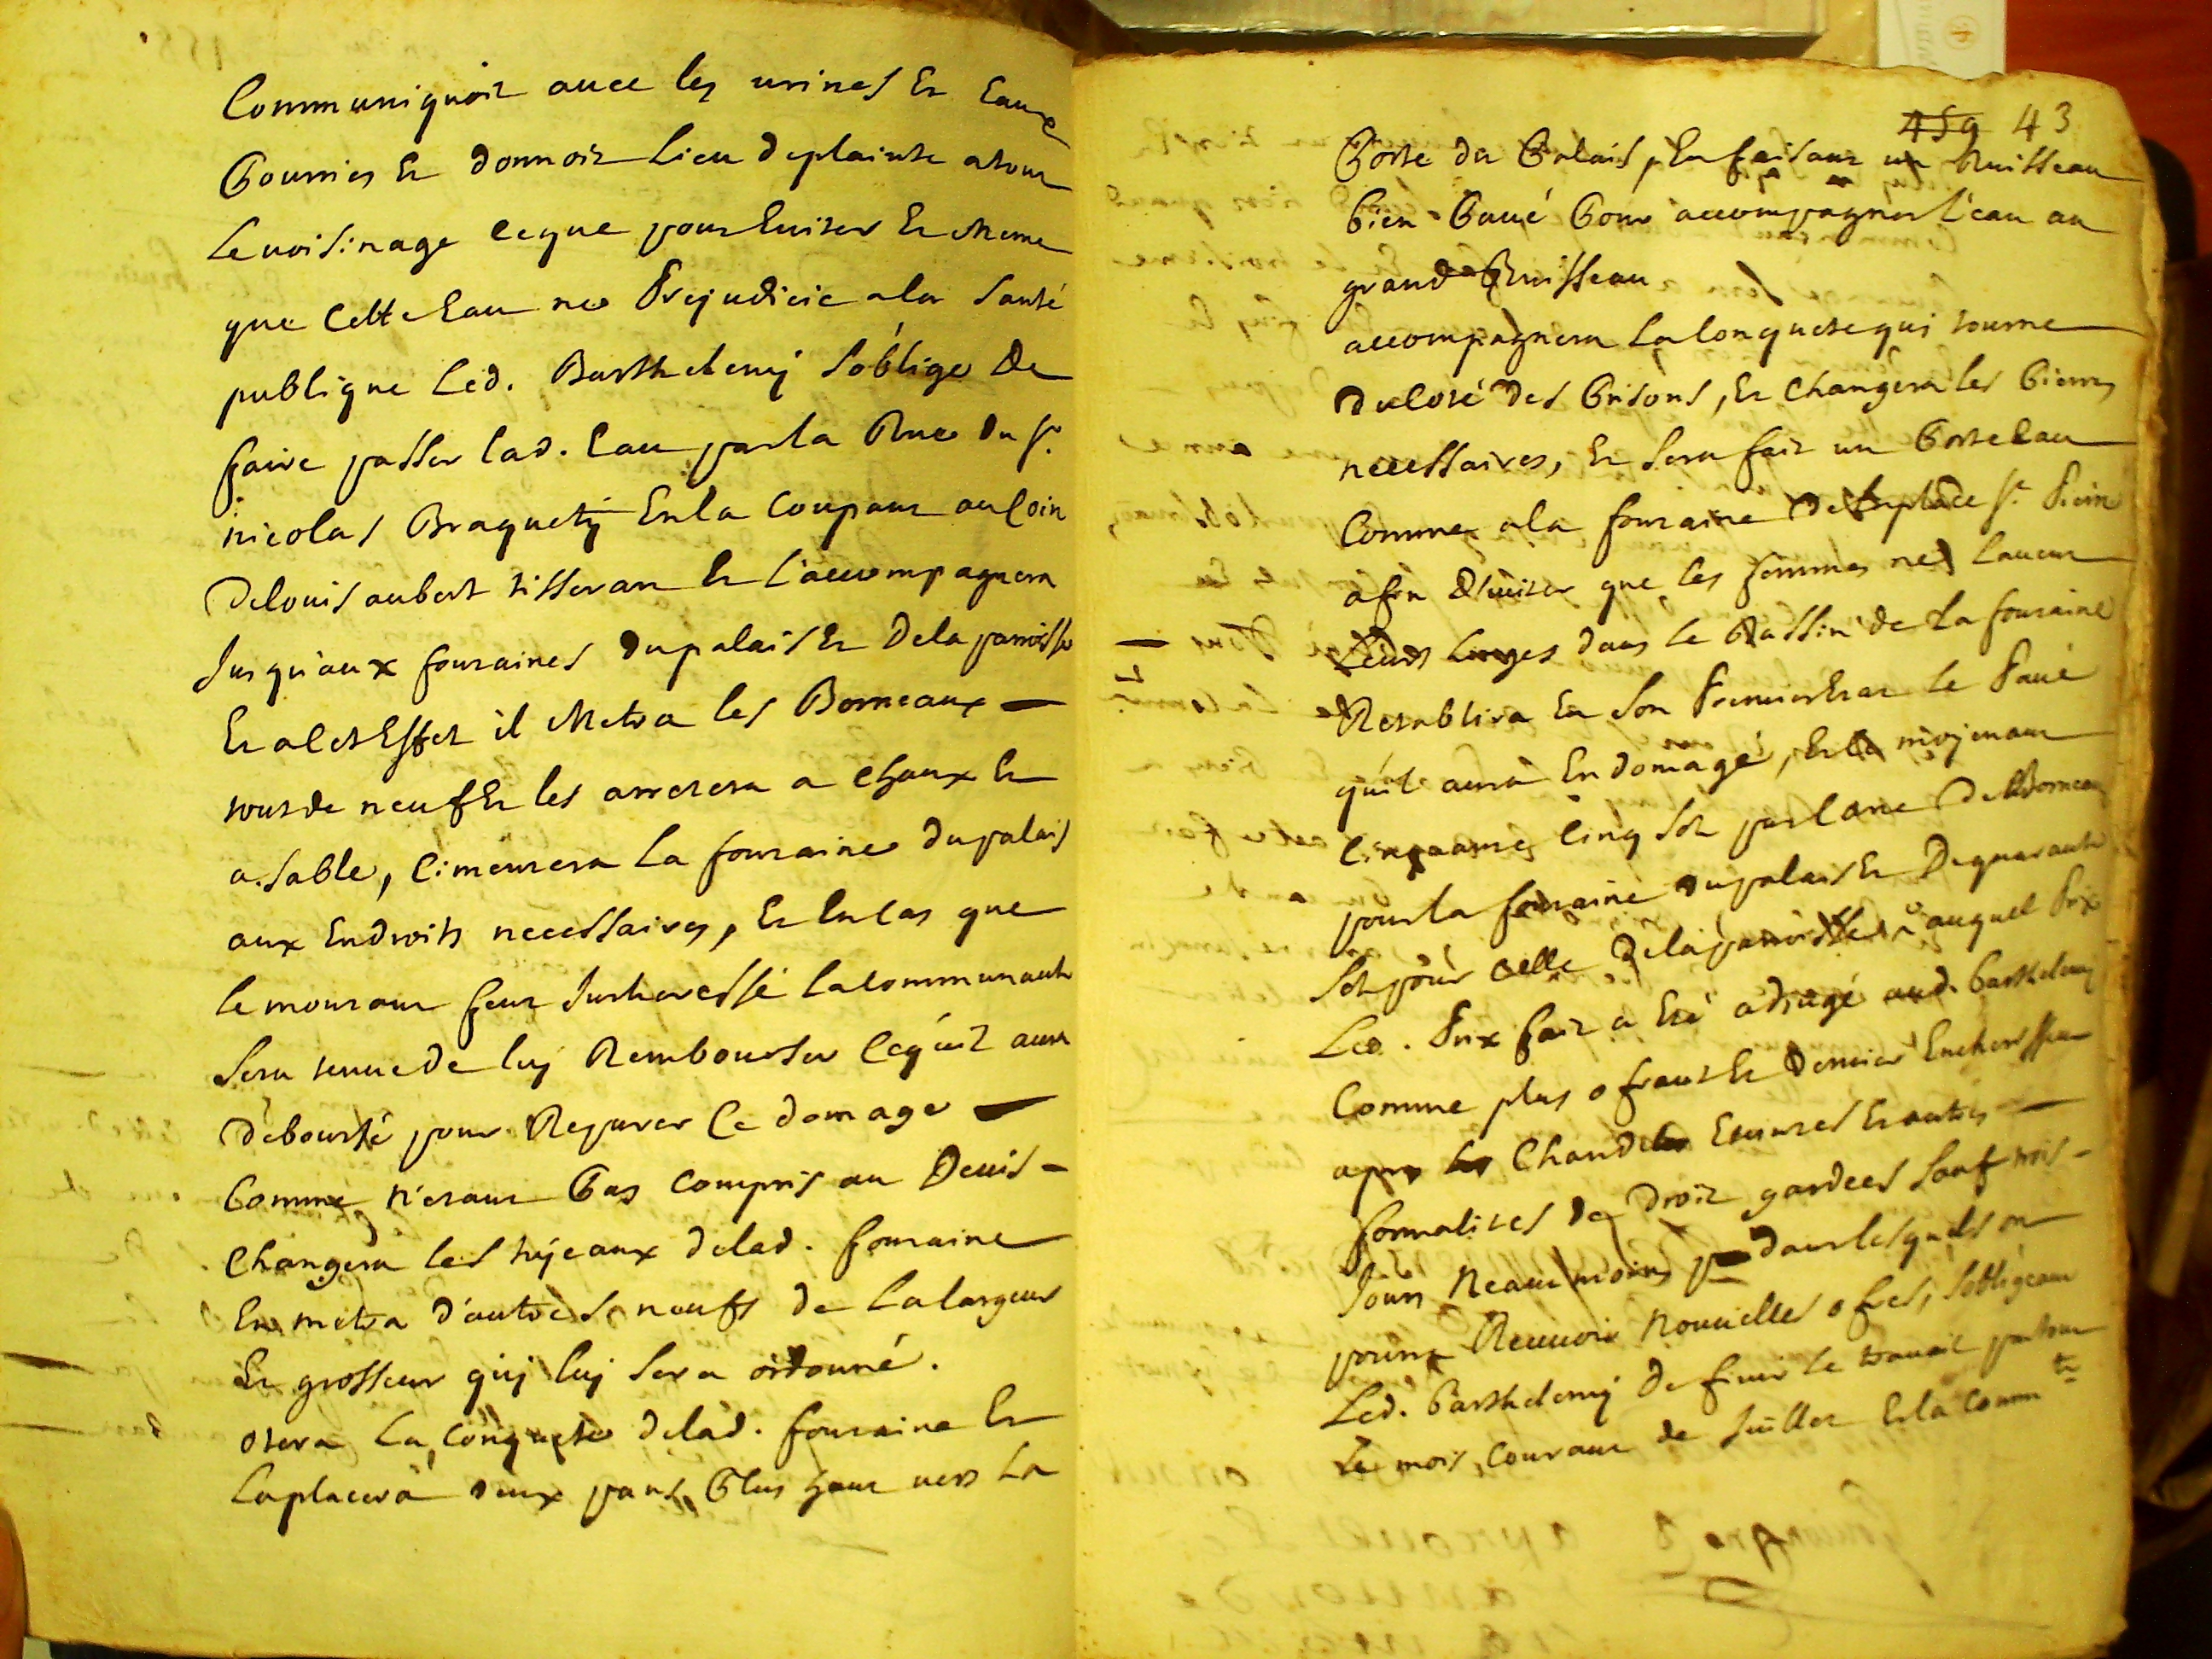 Communiquoit avec les urines Et Eaux
Pourries Et donnoit Lieu deplainte atout
Levoisinage ceque pour Eviter Et Meme
que Cette Eau ne Prejudicie ala Santé
publique Led. Barthelemy S'oblige De
faire passer lad. Eau parla Rue du Sr.
nicolas Braquety Enla Coupant aucoin
Delouis aubert tisseran Et l'accompagnera
Jusqu'aux fontaines dupalais Et Dela parroisse
Et acet Effet il Metra les Borneaux
tout de neuf Et les arretera a Chaux Et
a Sable, Cimentera La fontaine Dupalais
aux Endroits necessaires, Et Encas que
le montant feut Interessé Lacommunauté
Sera tenue de luy Rembourser Cequ'il aura
Déboursé pour Reparer Ce domage
Comme n'etant Pas compris au Devis
Changera les tuyeaux delad. fontaine
En metra d'autres neufs de Lalargeur
Et grosseur quy luy Sera ordonné.
otera La Conquete delad. fontaine Et
Laplacera deux pans Plus haut vers La
459 43
Porte du Palais, En faisant un Ruisseau
bien Pavé Pour accompagner l'eau au
grand Ruisseau
accompagnera Laconquete qui tourne
ducoté des Prisons, Et Changera les Pierres
necessaires, Et Sera fait un Porte Eau
Comme ala fontaine Delaplace St. Pierre
afin D'eviter que les femmes ne Lavent
Leurs Linges dans le Bassin de La fontaine
Retablira En Son Premier Etat le Pavé
qu'il aura Endomagé, Et moyenant
Cinquante Cinq Sols parcane De Borneau
pour la fontaine dupalais Et Dequarante
Sols pour celle Dela parroisse auquel Prix
Led. Prix fait a Eté adiugé aud. Barthelemy
Comme plus ofrant Et Dernier Encherisseur
apres les Chandeles Eteintes Et autres
formalites de Droit gardees Sauf trois
Jours Neantmoins pendant lesquels on
pourra Recevoir Nouvelles ofres, S'obligeant
Led. Barthelemy De finir le travail partout
Le mois Courant de Juillet Et la Comm.té